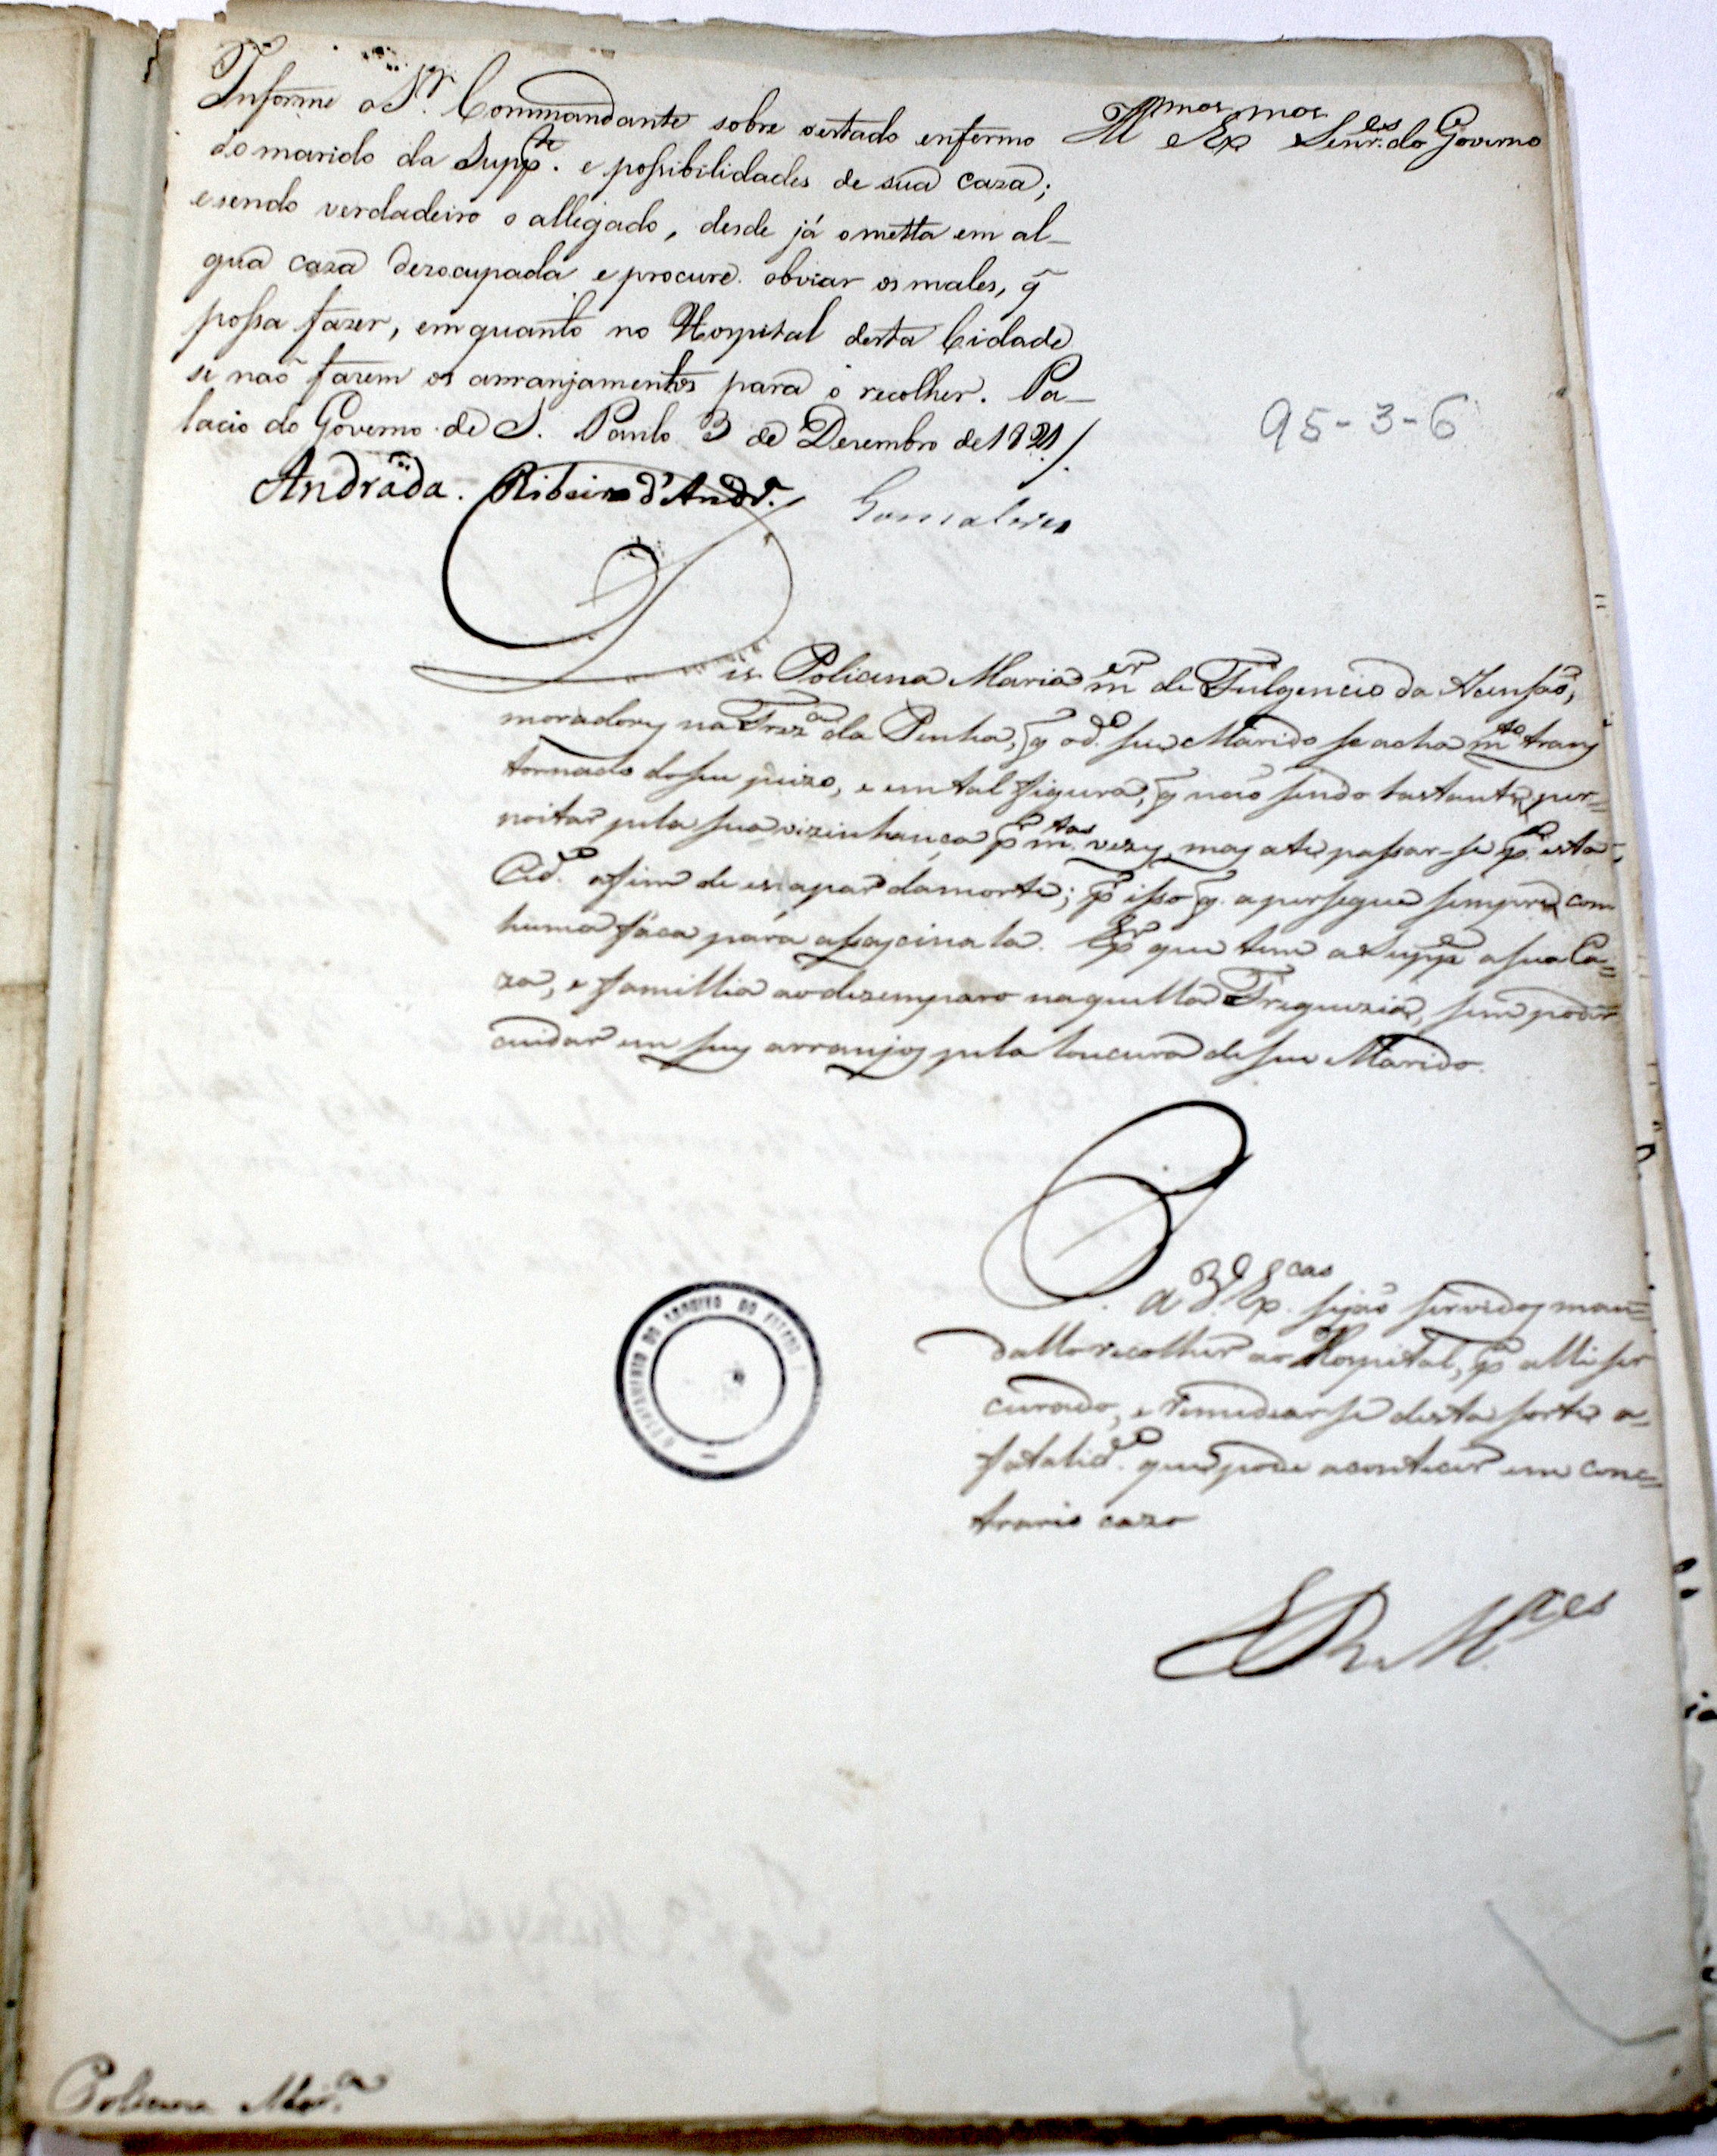 Informe o Sr. Commandante sobre o estado enfermo
do marido da Suppte. e possibilidades de sua caza;
e sendo verdadeiro o allegado, desde já o metta em al-
gũa caza dezocupada e procure obviar os males, q̃
possa fazer, em quanto no Hospital desta Cidade
se naõ fazem os arranjamentos para o recolher. Pa-
lacio do Governo de S. Paulo 3 de Dezembro de 1821/.
Andrada. Ribeiro d'Andr. Gonsalves
Illmos e Exmos Senres. do Governo
95-3-6
Diz Policena Maria mer de Fulgencio da Acensaõ,
moradores na Frega da Penha, q̃ o do. seu Marido se acha mto trans
tornado do seu juizo, e em tal figura, q̃ naõ sendo bastante per=
noitar pela sua vizinhança pr mtas. vezes, mas ate passar-se pa. esta
Cide. afim de escapar da morte; pr isso q̃. a persegue sempre com
huma faca para assaçinala. Pr que tem a Suppe a sua Ca=
za, e familia ao dezemparo naquella Freguezia, sem poder
cuidar em seus arranjos pela loucura de seu Marido.
P. a V. Excas sejaõ servidos man=
dallo recolher ao Hospital, pa alli ser
curado, e remediarse desta sorte a
fatalide. que pode acontecer em con=
trario cazo
E R Mces
Policena Mara.